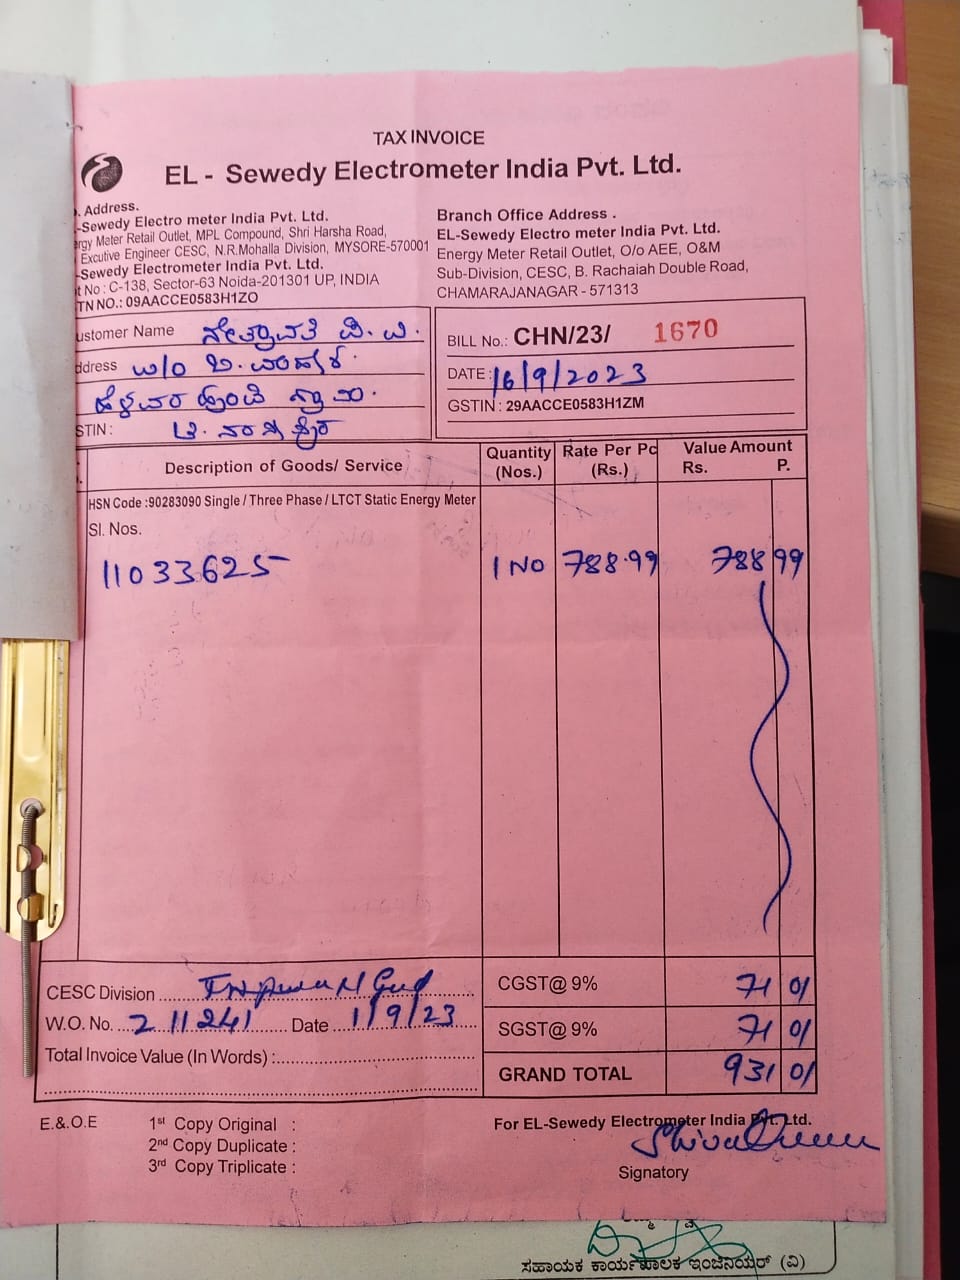 TAX INVOICE
EL - Sewedy Electrometer India Pvt. Ltd.
. Address.
-Sewedy Electro meter India Pvt. Ltd.
rgy Meter Retail Outlet, MPL Compound, Shri Harsha Road,
Excutive Engineer CESC, N.R.Mohalla Division, MYSORE-570001
-Sewedy Electrometer India Pvt. Ltd.
t No : C-138, Sector-63 Noida-201301 UP, INDIA
TN NO.: 09AACCE0583H1ZO
Branch Office Address .
EL-Sewedy Electro meter India Pvt. Ltd.
Energy Meter Retail Outlet, O/o AEE, O&M
Sub-Division, CESC, B. Rachaiah Double Road,
CHAMARAJANAGAR - 571313
ustomer Name
ddress W/O
STIN :
BILL No.: CHN/23/ 1670
DATE : 16/9/2023
GSTIN : 29AACCE0583H1ZM
Description of Goods/ Service Quantity (Nos.) Rate Per Pc (Rs.) Value Amount Rs. P.
HSN Code :90283090 Single / Three Phase / LTCT Static Energy Meter
Sl. Nos.
11033625 1 NO 788.99 788 99
CESC Division
W.O. No. 211241 Date 1/9/23
Total Invoice Value (In Words) :
CGST@ 9% 71 01
SGST@ 9% 71 01
GRAND TOTAL 931 01
E.&.O.E
1st Copy Original :
2nd Copy Duplicate :
3rd Copy Triplicate :
For EL-Sewedy Electrometer India Pvt. Ltd.
Signatory
ಸಹಾಯಕ ಕಾರ್ಯಪಾಲಕ ಇಂಜಿನಿಯರ್ (ವಿ)